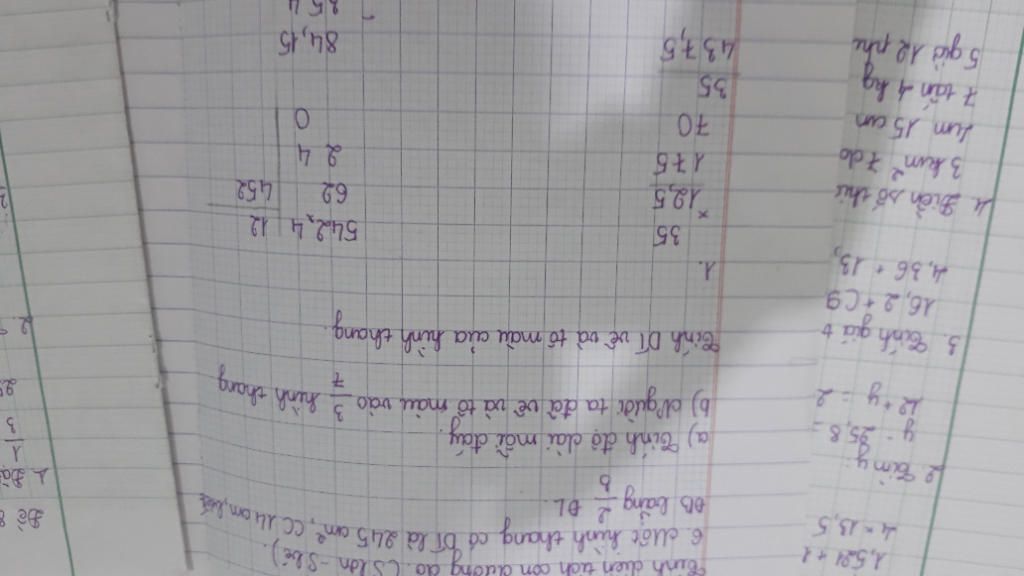 1,524 + 1
4 × 13,5
2. Tìm y:
y - 25,8 =
12 + y = 2
3. Tính giá t
16,2 + (9
4,36 + 13,
4. Điền số
3 km² 7
1m 15 cm
7 tấn 4 kg
5 giờ 12
Tính diện tích con đường đó. (S lớn - S bé).
6 Một hình thang có DT là 245 cm², CC 14 cm, biết
ĐB bằng 2/5 ĐL.
a) Tính độ dài mỗi đáy.
b) Người ta đã vẽ và tô màu vào 3/7 hình thang
Tính DT vẽ và tô màu của hình thang.
1.
35
× 12,5
175
70
35
437,5
542,4 | 12
62 | 452
24
0
84,15
Đề 8
1. Đặt
1/3
25
2.